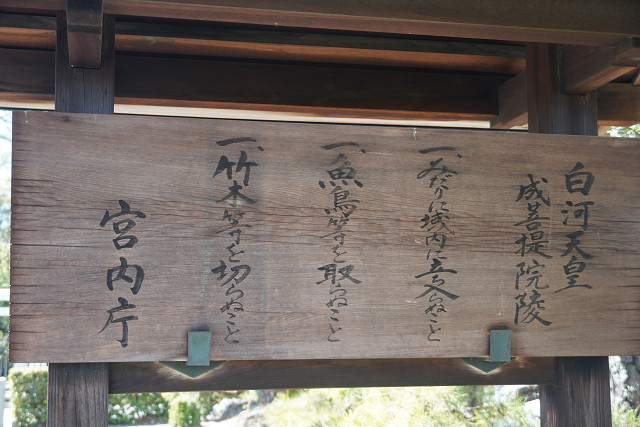 白河天皇
成菩提院陵
一、みだりに域内に立ち入らぬこと
一、魚鳥等を取らぬこと
一、竹木等を切らぬこと
宮内庁